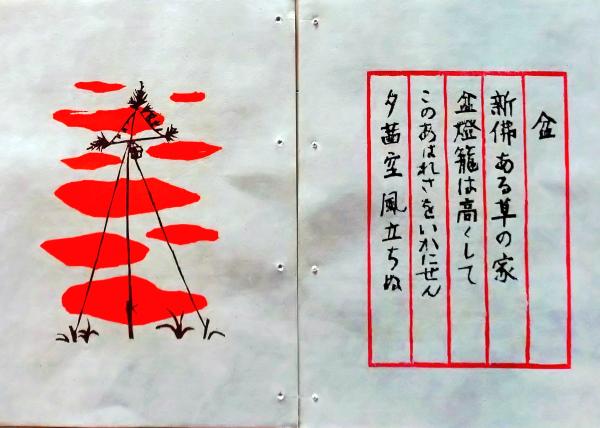 盆
新佛ある草の家
盆燈籠は高くして
このあはれさをいかにぜん
夕茜空風立ちぬ